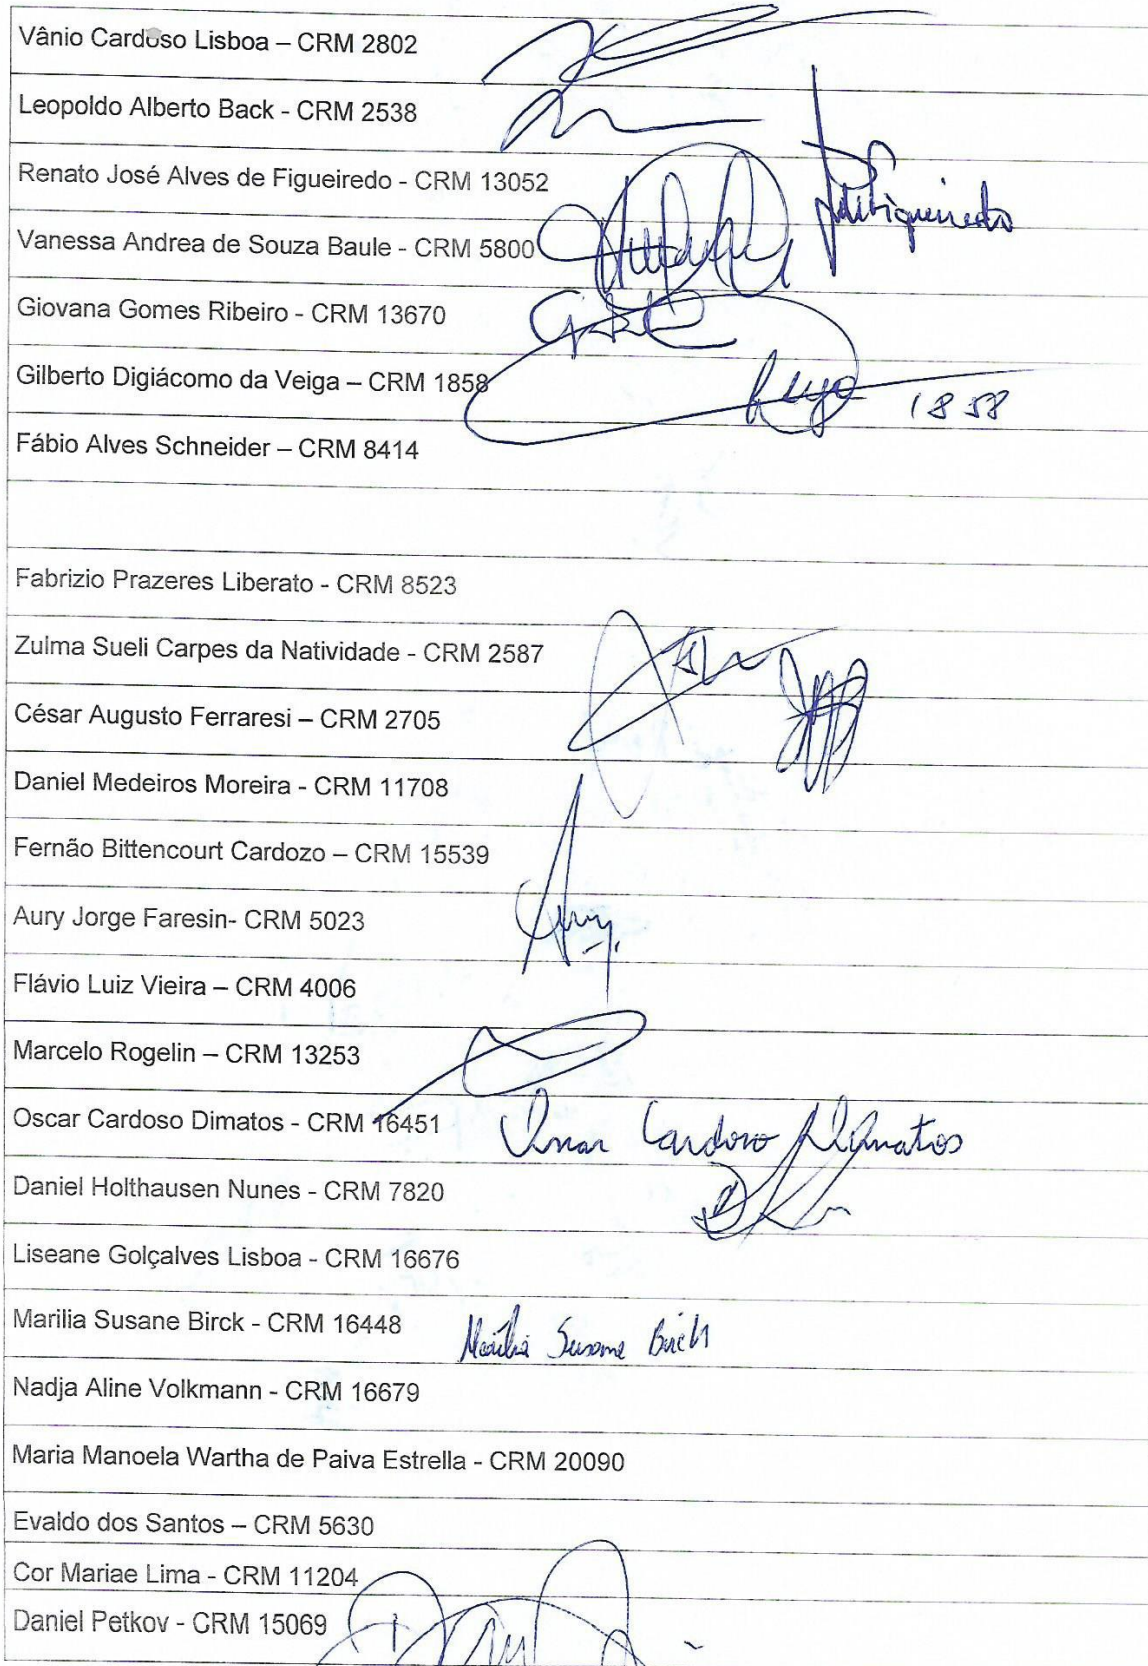 Vânio Cardoso Lisboa – CRM 2802
Leopoldo Alberto Back - CRM 2538
Renato José Alves de Figueiredo - CRM 13052
Vanessa Andrea de Souza Baule - CRM 5800
Giovana Gomes Ribeiro - CRM 13670
Gilberto Digiácomo da Veiga – CRM 1858 1858
Fábio Alves Schneider – CRM 8414
Fabrizio Prazeres Liberato - CRM 8523
Zulma Sueli Carpes da Natividade - CRM 2587
César Augusto Ferraresi – CRM 2705
Daniel Medeiros Moreira - CRM 11708
Fernão Bittencourt Cardozo – CRM 15539
Aury Jorge Faresin- CRM 5023 Aury.
Flávio Luiz Vieira – CRM 4006
Marcelo Rogelin – CRM 13253
Oscar Cardoso Dimatos - CRM 16451 Oscar Cardoso Dimatos
Daniel Holthausen Nunes - CRM 7820
Liseane Golçalves Lisboa - CRM 16676
Marilia Susane Birck - CRM 16448 Marilia Susane Birck
Nadja Aline Volkmann - CRM 16679
Maria Manoela Wartha de Paiva Estrella - CRM 20090
Evaldo dos Santos – CRM 5630
Cor Mariae Lima - CRM 11204
Daniel Petkov - CRM 15069